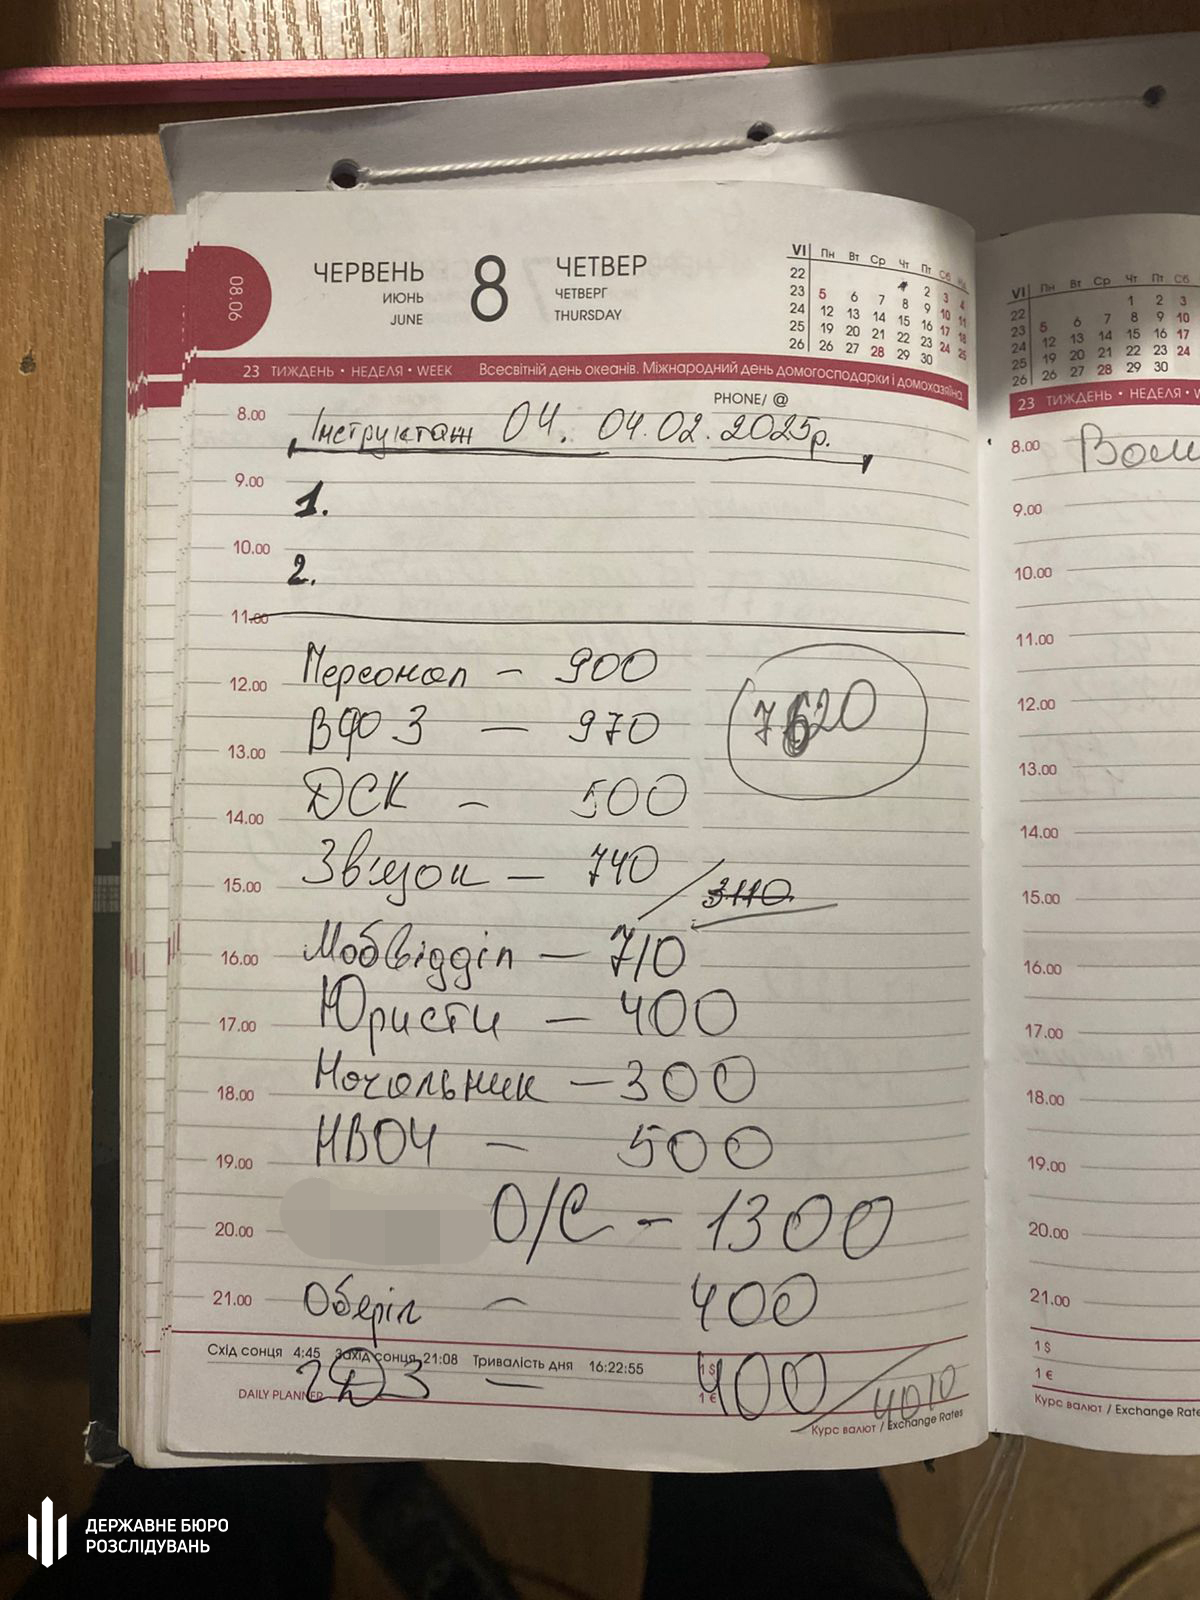 08.06
ЧЕРВЕНЬ
ИЮНЬ
JUNE
8
ЧЕТВЕР
ЧЕТВЕРГ
THURSDAY
VI Пн Вт Ср Чт Пт Сб
22 2 3 4
23 5 6 7 8 9 10 11
24 12 13 14 15 16 17 18
25 19 20 21 22 23 24 25
26 26 27 28 29 30
23 ТИЖДЕНЬ • НЕДЕЛЯ • WEEK Всесвітній день океанів. Міжнародний день домогосподарки і домохазяїна
PHONE/ @
8.00 Інструктаж 04. 04.02.2025р.
9.00 1.
10.00 2.
11.00
12.00 Персонал – 900
7620
13.00 ВФОЗ — 970
14.00 ДСК – 500
15.00 Зв'язок – 740 / 3110
16.00 Мобвідділ – 710
17.00 Юристи – 400
18.00 Начальник – 300
19.00 НВОЧ – 500
20.00 О/С – 1300
21.00 Оберіг – 400
Схід сонця 4:45 Захід сонця 21:08 Тривалість дня 16:22:55
1 $
– 400 / 4010
DAILY PLANNER
1 €
Курс валют / Exchange Rates
VI Пн Вт Ср Чт Пт Сб
22 1 2 3
23 5 6 7 8 9 10
24 12 13 14 15 16 17
25 19 20 21 22 23 24
26 26 27 28 29 30
23 ТИЖДЕНЬ • НЕДЕЛЯ •
8.00
9.00
10.00
11.00
12.00
13.00
14.00
15.00
16.00
17.00
18.00
19.00
20.00
21.00
1 $
1 €
Курс валют / Exchange
ДЕРЖАВНЕ БЮРО
РОЗСЛІДУВАНЬ